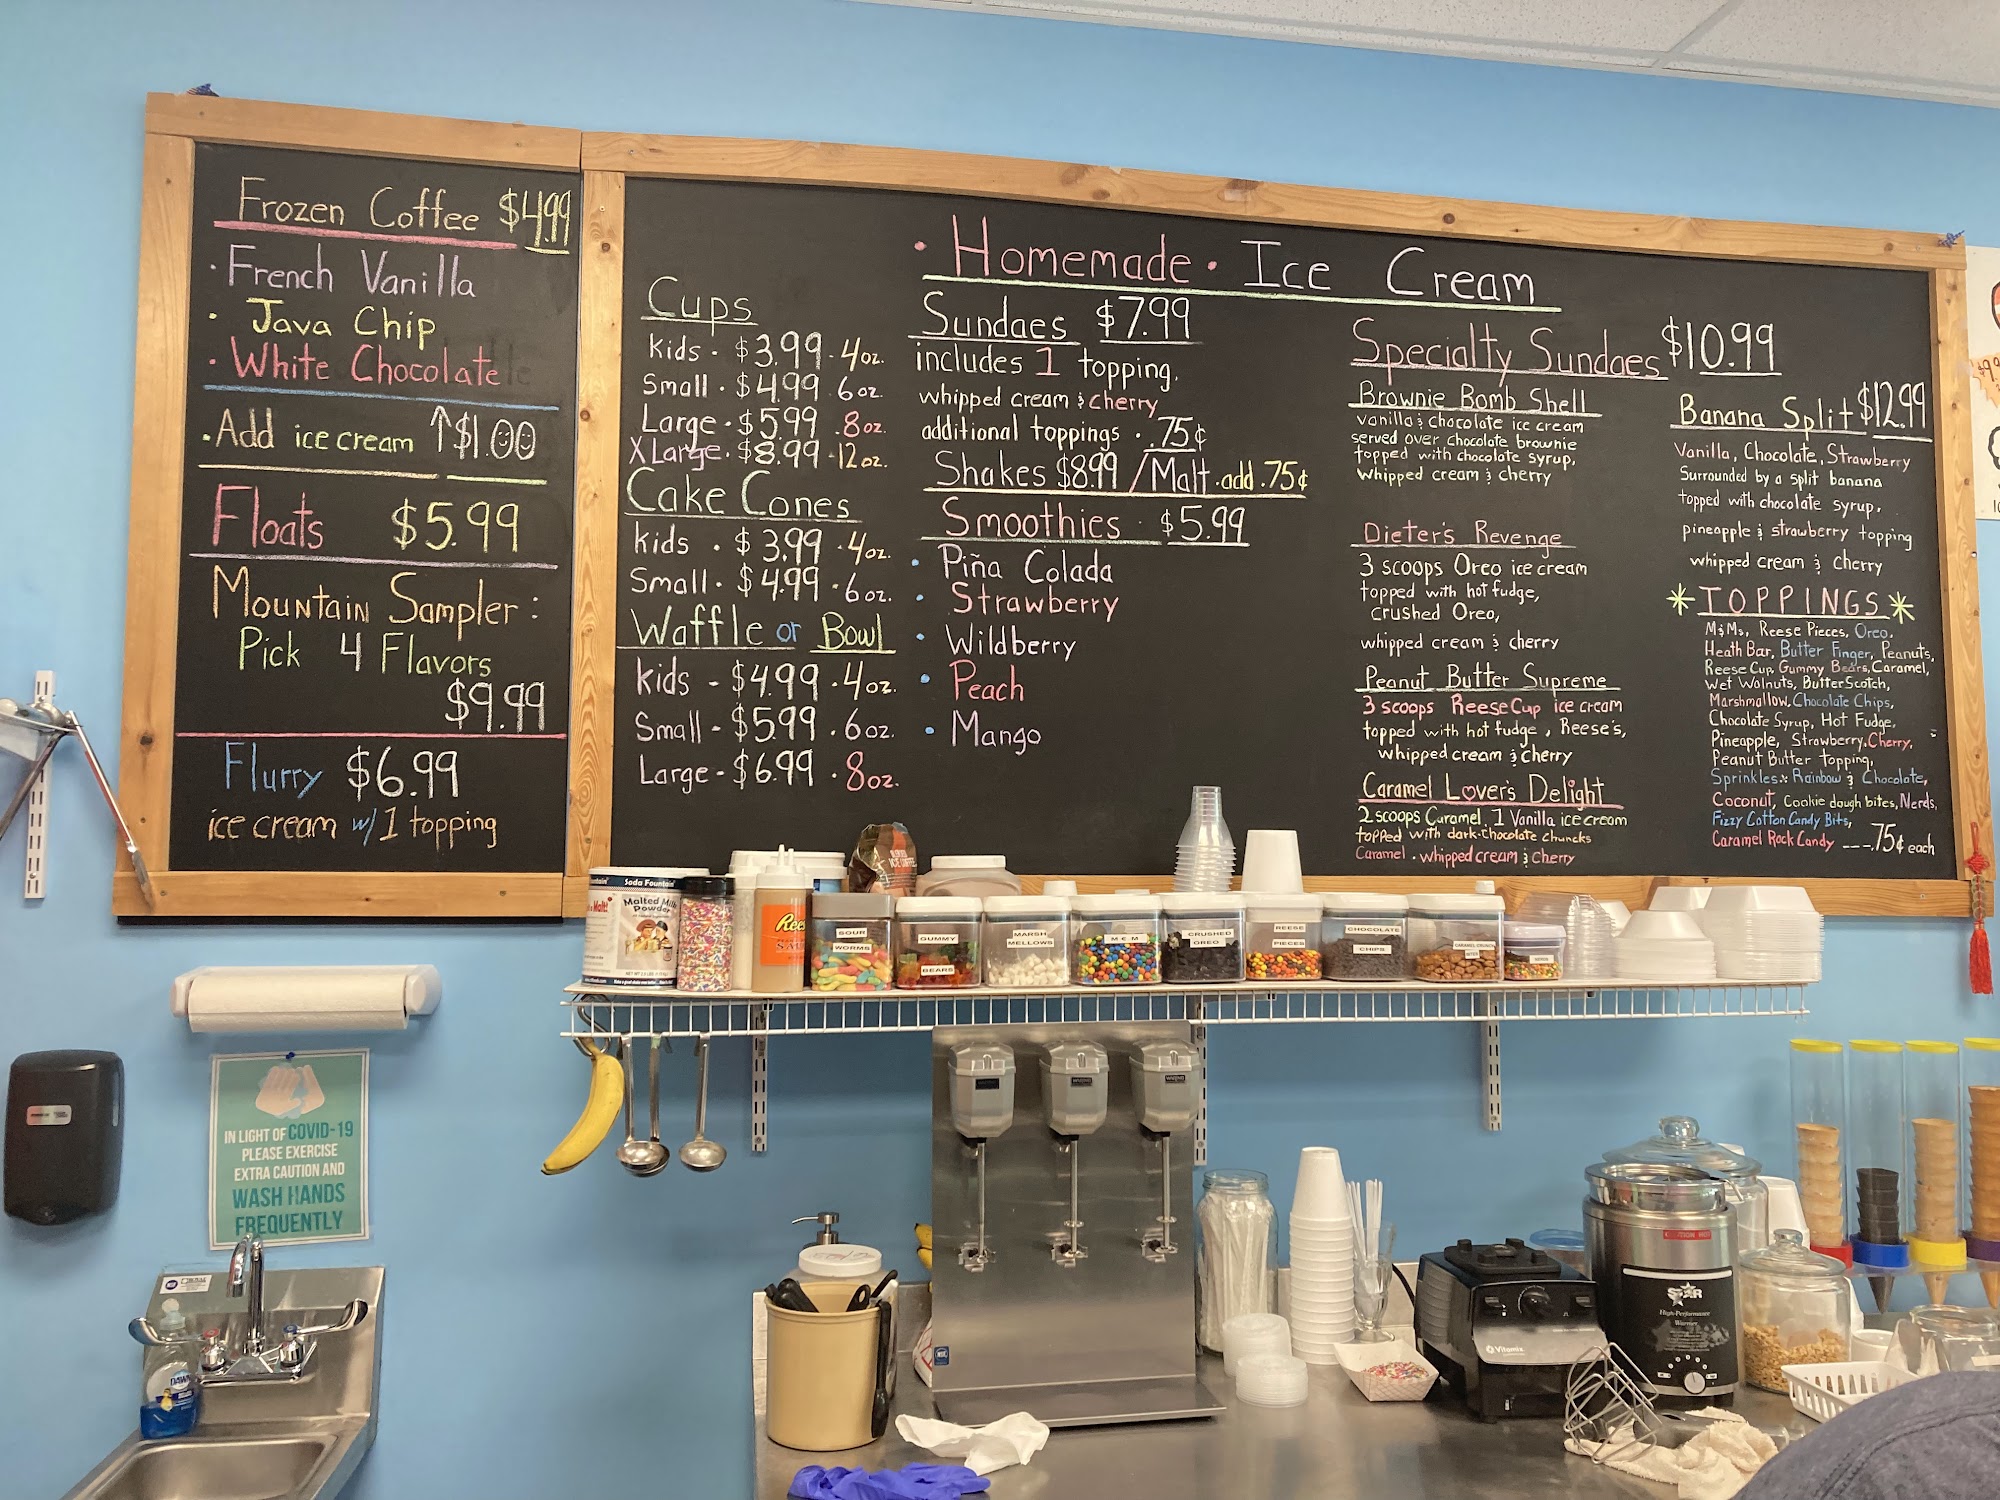 Frozen Coffee $4.99
· French Vanilla
· Java Chip
· White Chocolate
· Add ice cream ↑$1.00
Floats $5.99
Mountain Sampler:
Pick 4 Flavors
$9.99
Flurry $6.99
ice cream w/ 1 topping
· Homemade · Ice Cream
Cups
Kids · $3.99 · 4oz.
Small · $4.99 6oz.
Large · $5.99 . 8oz.
XLarge · $8.99 - 12oz.
Cake Cones
Kids · $3.99 · 4oz.
Small · $4.99 · 6oz.
Waffle or Bowl
Kids - $4.99 · 4oz.
Small - $5.99 · 6oz.
Large - $6.99 · 8oz.
Sundaes $7.99
includes 1 topping,
whipped cream & cherry
additional toppings · .75¢
Shakes $8.99 / Malt · add .75¢
Smoothies · $5.99
· Piña Colada
· Strawberry
· Wildberry
· Peach
· Mango
Specialty Sundaes $10.99
Brownie Bomb Shell
vanilla & chocolate ice cream
served over chocolate brownie
topped with chocolate syrup,
whipped cream & cherry
Dieter's Revenge
3 scoops Oreo ice cream
topped with hot fudge,
crushed Oreo,
whipped cream & cherry
Peanut Butter Supreme
3 scoops Reese Cup ice cream
topped with hot fudge, Reese's,
whipped cream & cherry
Caramel Lover's Delight
2 scoops Caramel, 1 Vanilla ice cream
topped with dark-chocolate chuncks
Caramel · whipped cream & cherry
Banana Split $12.99
Vanilla, Chocolate, Strawberry
Surrounded by a split banana
topped with chocolate syrup,
pineapple & strawberry topping
whipped cream & cherry
* TOPPINGS *
M&Ms, Reese Pieces, Oreo,
Heath Bar, Butter Finger, Peanuts,
Reese Cup, Gummy Bears, Caramel,
Wet Walnuts, ButterScotch,
Marshmallow, Chocolate Chips,
Chocolate Syrup, Hot Fudge,
Pineapple, Strawberry, Cherry,
Peanut Butter topping,
Sprinkles: Rainbow & Chocolate,
Coconut, Cookie dough bites, Nerds,
Fizzy Cotton Candy Bits,
Caramel Rock Candy ---.75¢ each
Soda Fountain
Malted Milk
Powder
Reese
SOUR
WORMS
GUMMY
BEARS
MARSH
MELLOWS
M & M
CRUSHED
OREO
REESE
PIECES
CHOCOLATE
CHIPS
NERDS
ICE COFFEE
IN LIGHT OF COVID-19
PLEASE EXERCISE
EXTRA CAUTION AND
WASH HANDS
FREQUENTLY
DAWN
Vitamix
STAR
High-Performance
Warmer